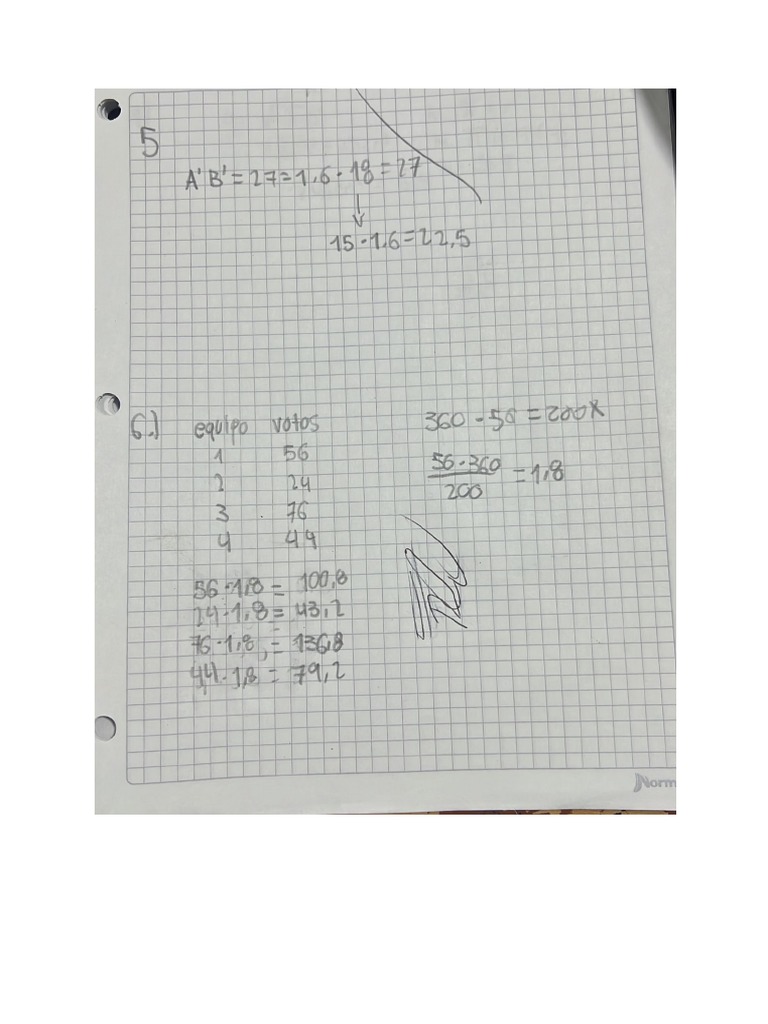 5
A'B' = 27 = 1,6 · 18 = 27
↓
15 · 1,6 = 22,5
6.) equipo votos
1 56
2 24
3 76
4 44
360 · 56 = 200x
56 · 360 / 200 = 1,8
56 · 1,8 = 100,8
24 · 1,8 = 43,2
76 · 1,8 = 136,8
44 · 1,8 = 79,2
Norm